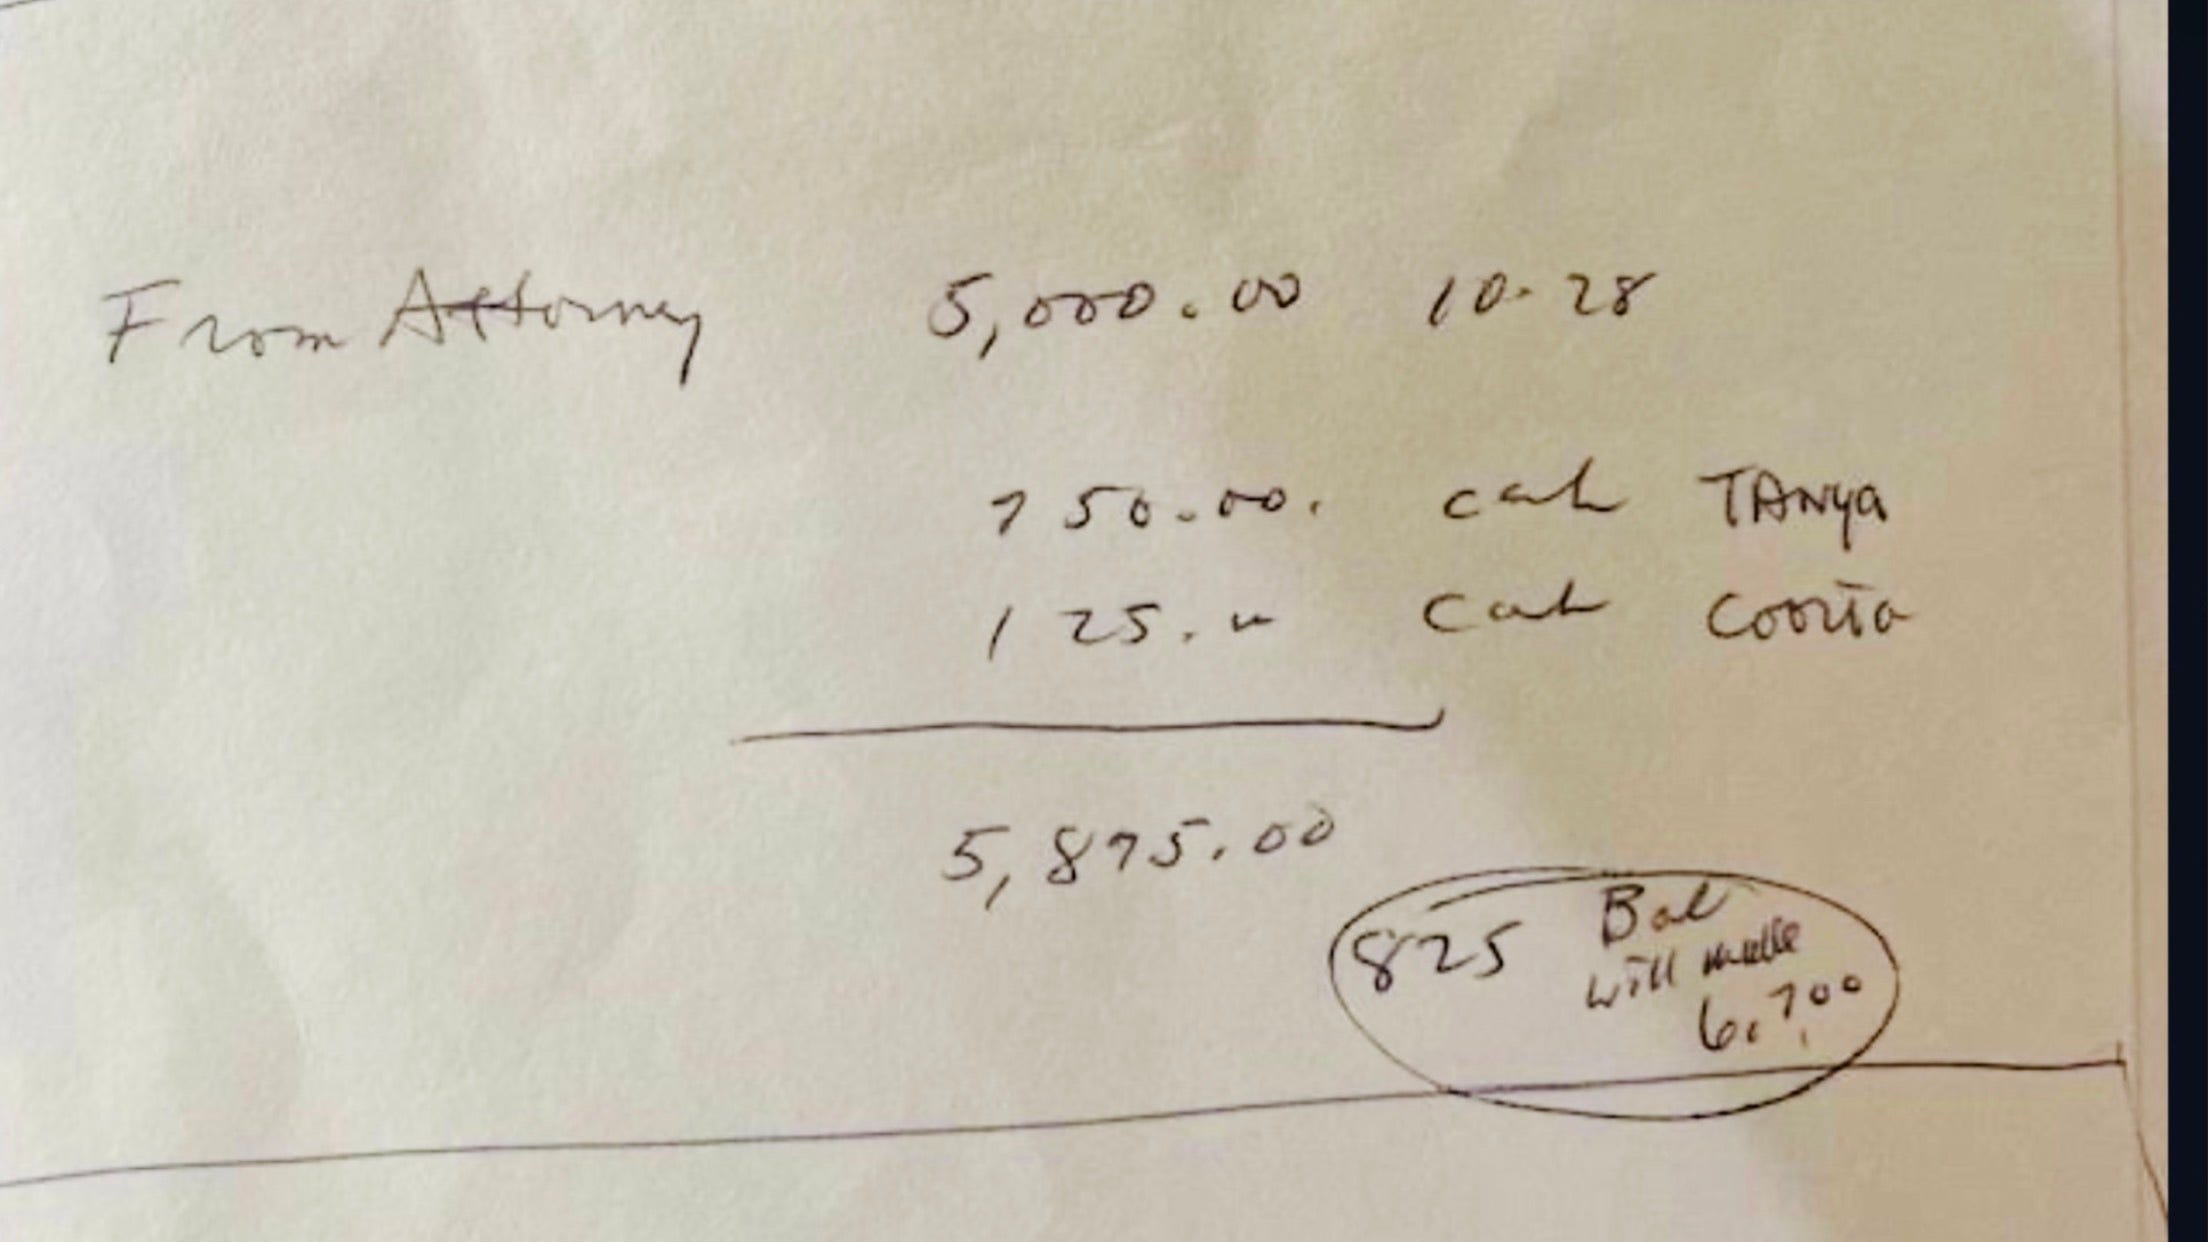 From Attorney 5,000.00 10-28
750.00. cash TANya
125.00 cash
5,875.00
825 Bal
will make
6,700